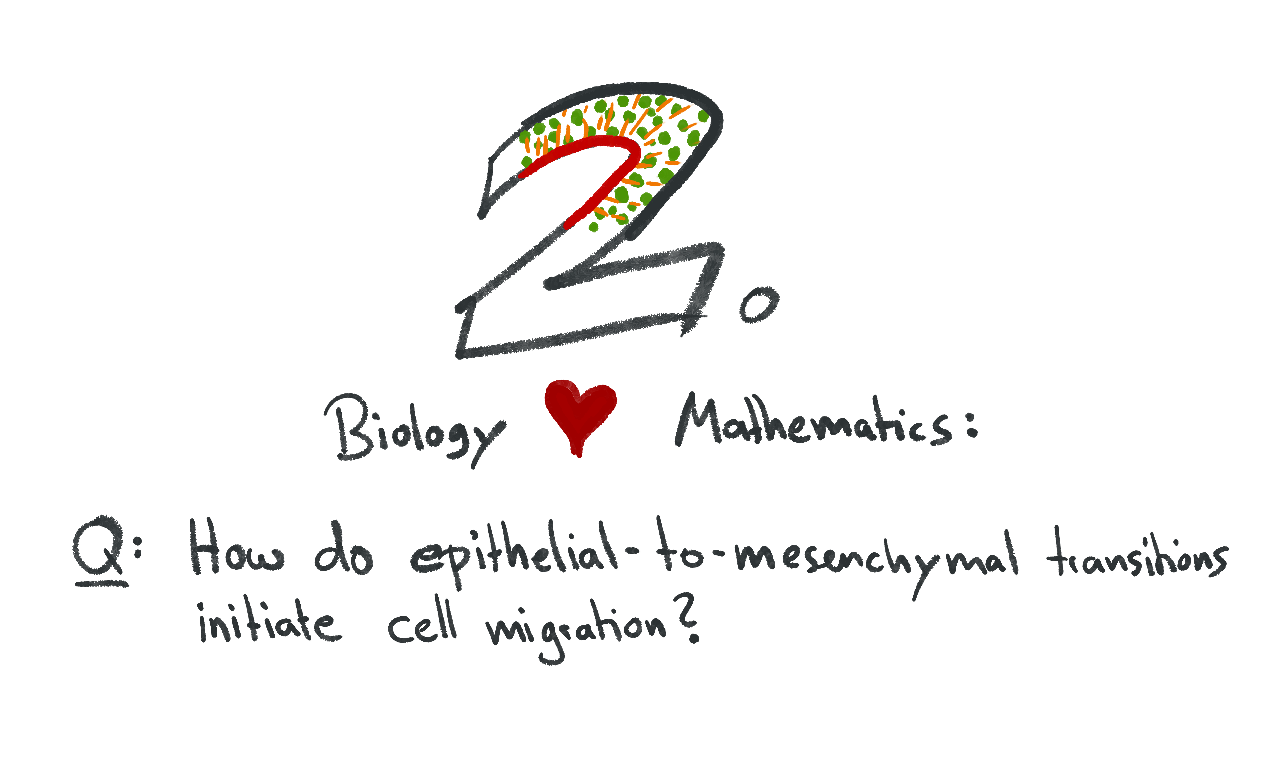 2.
Biology ♥ Mathematics:
Q: How do epithelial-to-mesenchymal transitions
initiate cell migration?